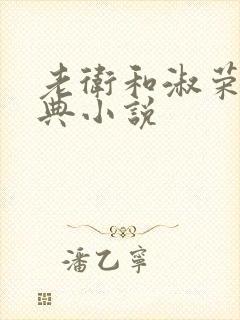 老衛和淑荣
典小説
潘乙寧